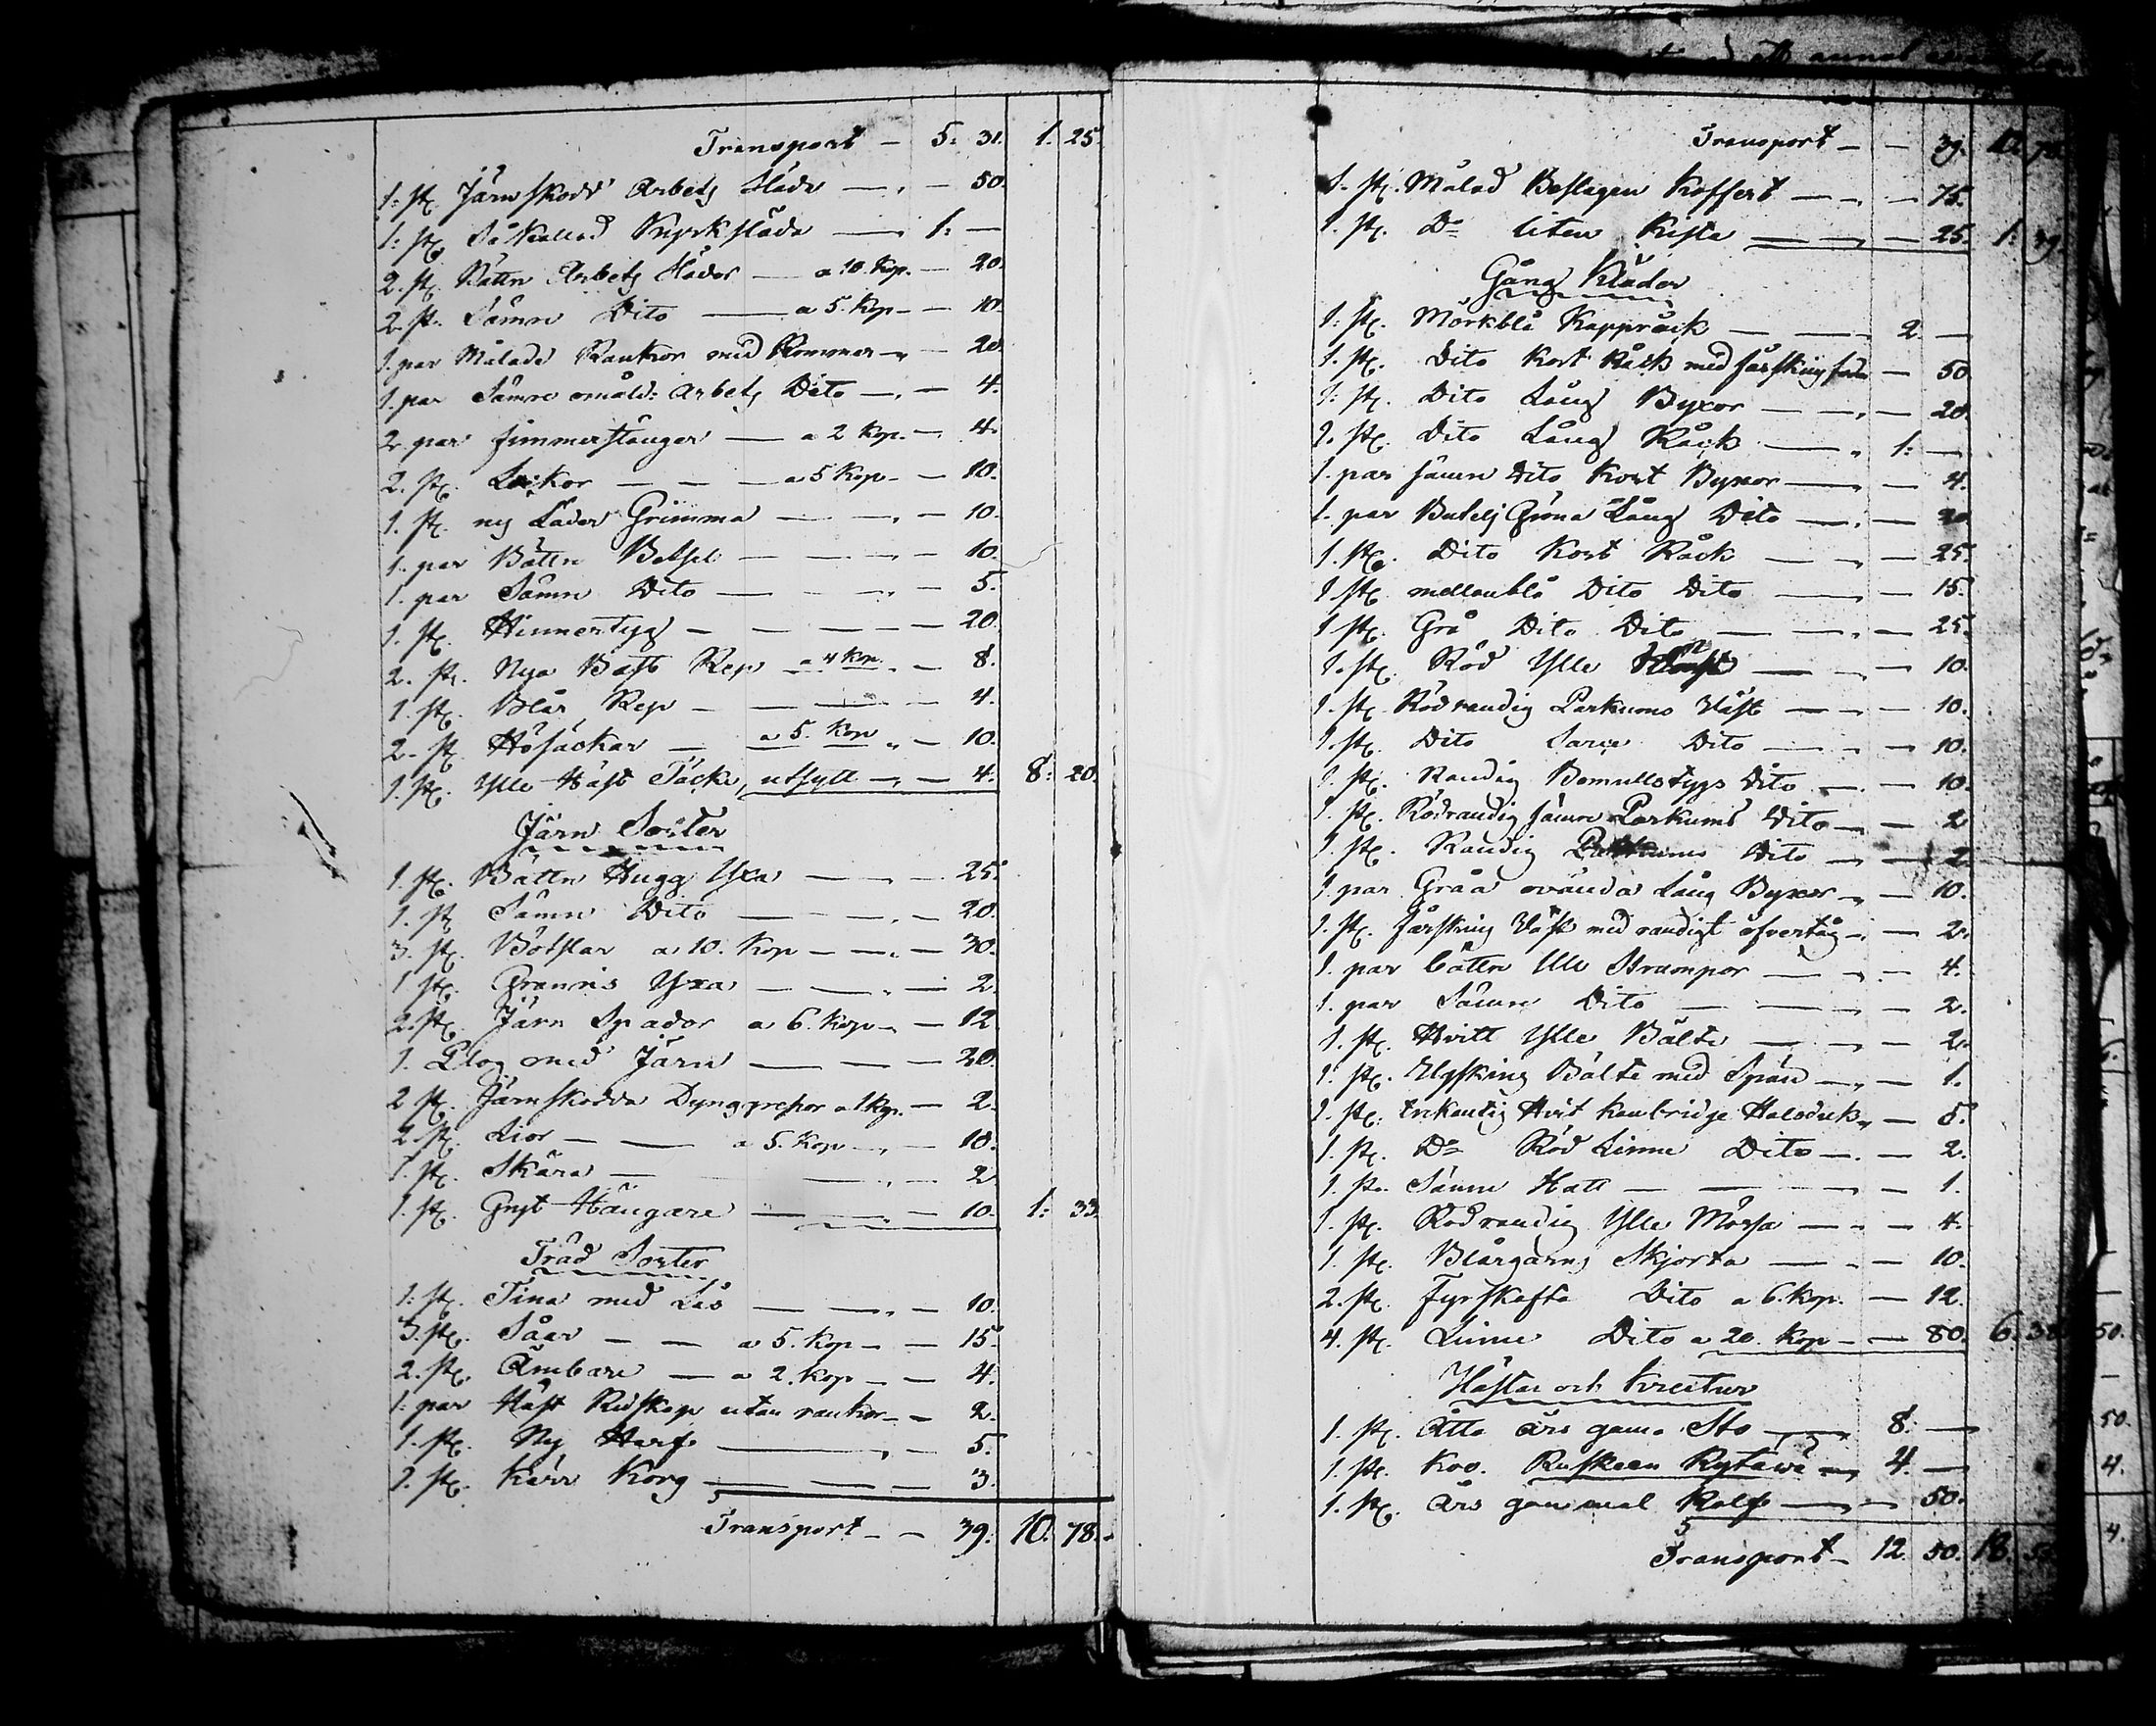 Transport — 5: 31. 1. 25.
1: st. Järnskodd Arbets Släda — 50.
1: st. Så Kallad Kyrksläda — 1: —
2. st. Bättre Arbets Slädor — a 10. Kop. — 20.
2. st. Sämre Dito — a 5. Kop — 10.
1. par Målade Rankor med Rommor — 20.
1. par Sämre omåld: Arbets Dito — 4.
2 par Timmerstänger — a 2 Kop. — 4.
2. st. Lockor — a 5 Kop — 10.
1. st. ny Läder Grimma — 10.
1. par Bättre Betsel — 10.
1. par Sämre Dito — 5.
1. st. Hinnertyg — 20.
2. st. Nya Bast Rep — a 4 Kop. — 8.
1. st. Blår Rep — 4.
2. st. Hösäckar — a 5. Kop — 10.
1. st. Ylle Häst Täcke, utsytt — 4. 8: 20.
Järn Sorter
1. st. Bättre Hugg Yxa — 25.
1. st. Sämre Dito — 20.
3. st. Bötslar a 10. Kop — 30.
1 st. Granris Yxa — 2.
2. st. Järn Spador a 6. Kop — 12
1. Plog med Järn — 20.
2 st. Järnskodda Dyng grepor a 1 Kop. — 2.
2. st. Lior — a 5. Kop — 10.
1. st. Skära — 2
1. st. Gryt Hängare — 10. 1: 33.
Träd Sorter
1: st. Tina med Lås — 10.
3. st. Såar — a 5. Kop — 15.
2. st. Ämbare — a 2. Kop — 4.
1: par Häst Redskap utan rankor — 2.
1. st. Ny Harf — 5.
1. st. Kärr Korg — 3.
Transport — 39. 10. 78.
Transport — 39. 10. 78.
1. st. Målad Beslagen Koffert — 75.
1. st. Do liten Kista — 25. 1: 39.
Gång Kläder
1: st. Mörkblå Kappråck — 2. —
1. st. Dito Kort Råck med fårskins foder — 50
1: st. Dito Lång Byxor — 20.
1. st. Dito Lång Råck — 1: —
1. par sämre Dito Kort Byxor — 4.
1. par Butelj Gröna Lång Dito — 20
1. st. Dito Kort Råck — 25.
1 st. mellanblå Dito Dito — 15.
1 st. Grå Dito Dito — 25.
1. st. Röd Ylle — 10.
1. st. Rödrandig Parkums Väst — 10.
1. st. Dito Dito — 10.
1. st. Randig Bomullstygs Dito — 10.
1. st. Rödrandig sämre Parkums Dito — 2
1. st. Randig Parkums Dito — 2
1 par Gråa Lång Byxor — 10.
1. st. fårskins Väst med randigt öfvertåg — 2.
1. par bättre Ylle Strumpor — 4.
1. par Sämre Dito — 2.
1. st. Hvitt Ylle Bälte — 2.
1. st. Elgskins Bälte med Spän — 1.
1. st. trekantig Hvit kambridge Halsduk — 5.
1. st. Do Röd Linne Dito — 2.
1. st. Sämre Hatt — 1.
1. st. Rödrandig Ylle Mössa — 4.
1. st. Blårgarns Skjorta — 10.
2. st. Fyrskafta Dito a 6. Kop. — 12.
4. st. Linne Dito a 20. Kop — 80. 6. 38.
Hästar och Kreatur
1. st. Åtta års gam. Sto — 8. —
1. st. Koo. Ruskean Kytävä — 4. —
1. st. års gammal Kalf — 50.
Transport — 12. 50. 18.